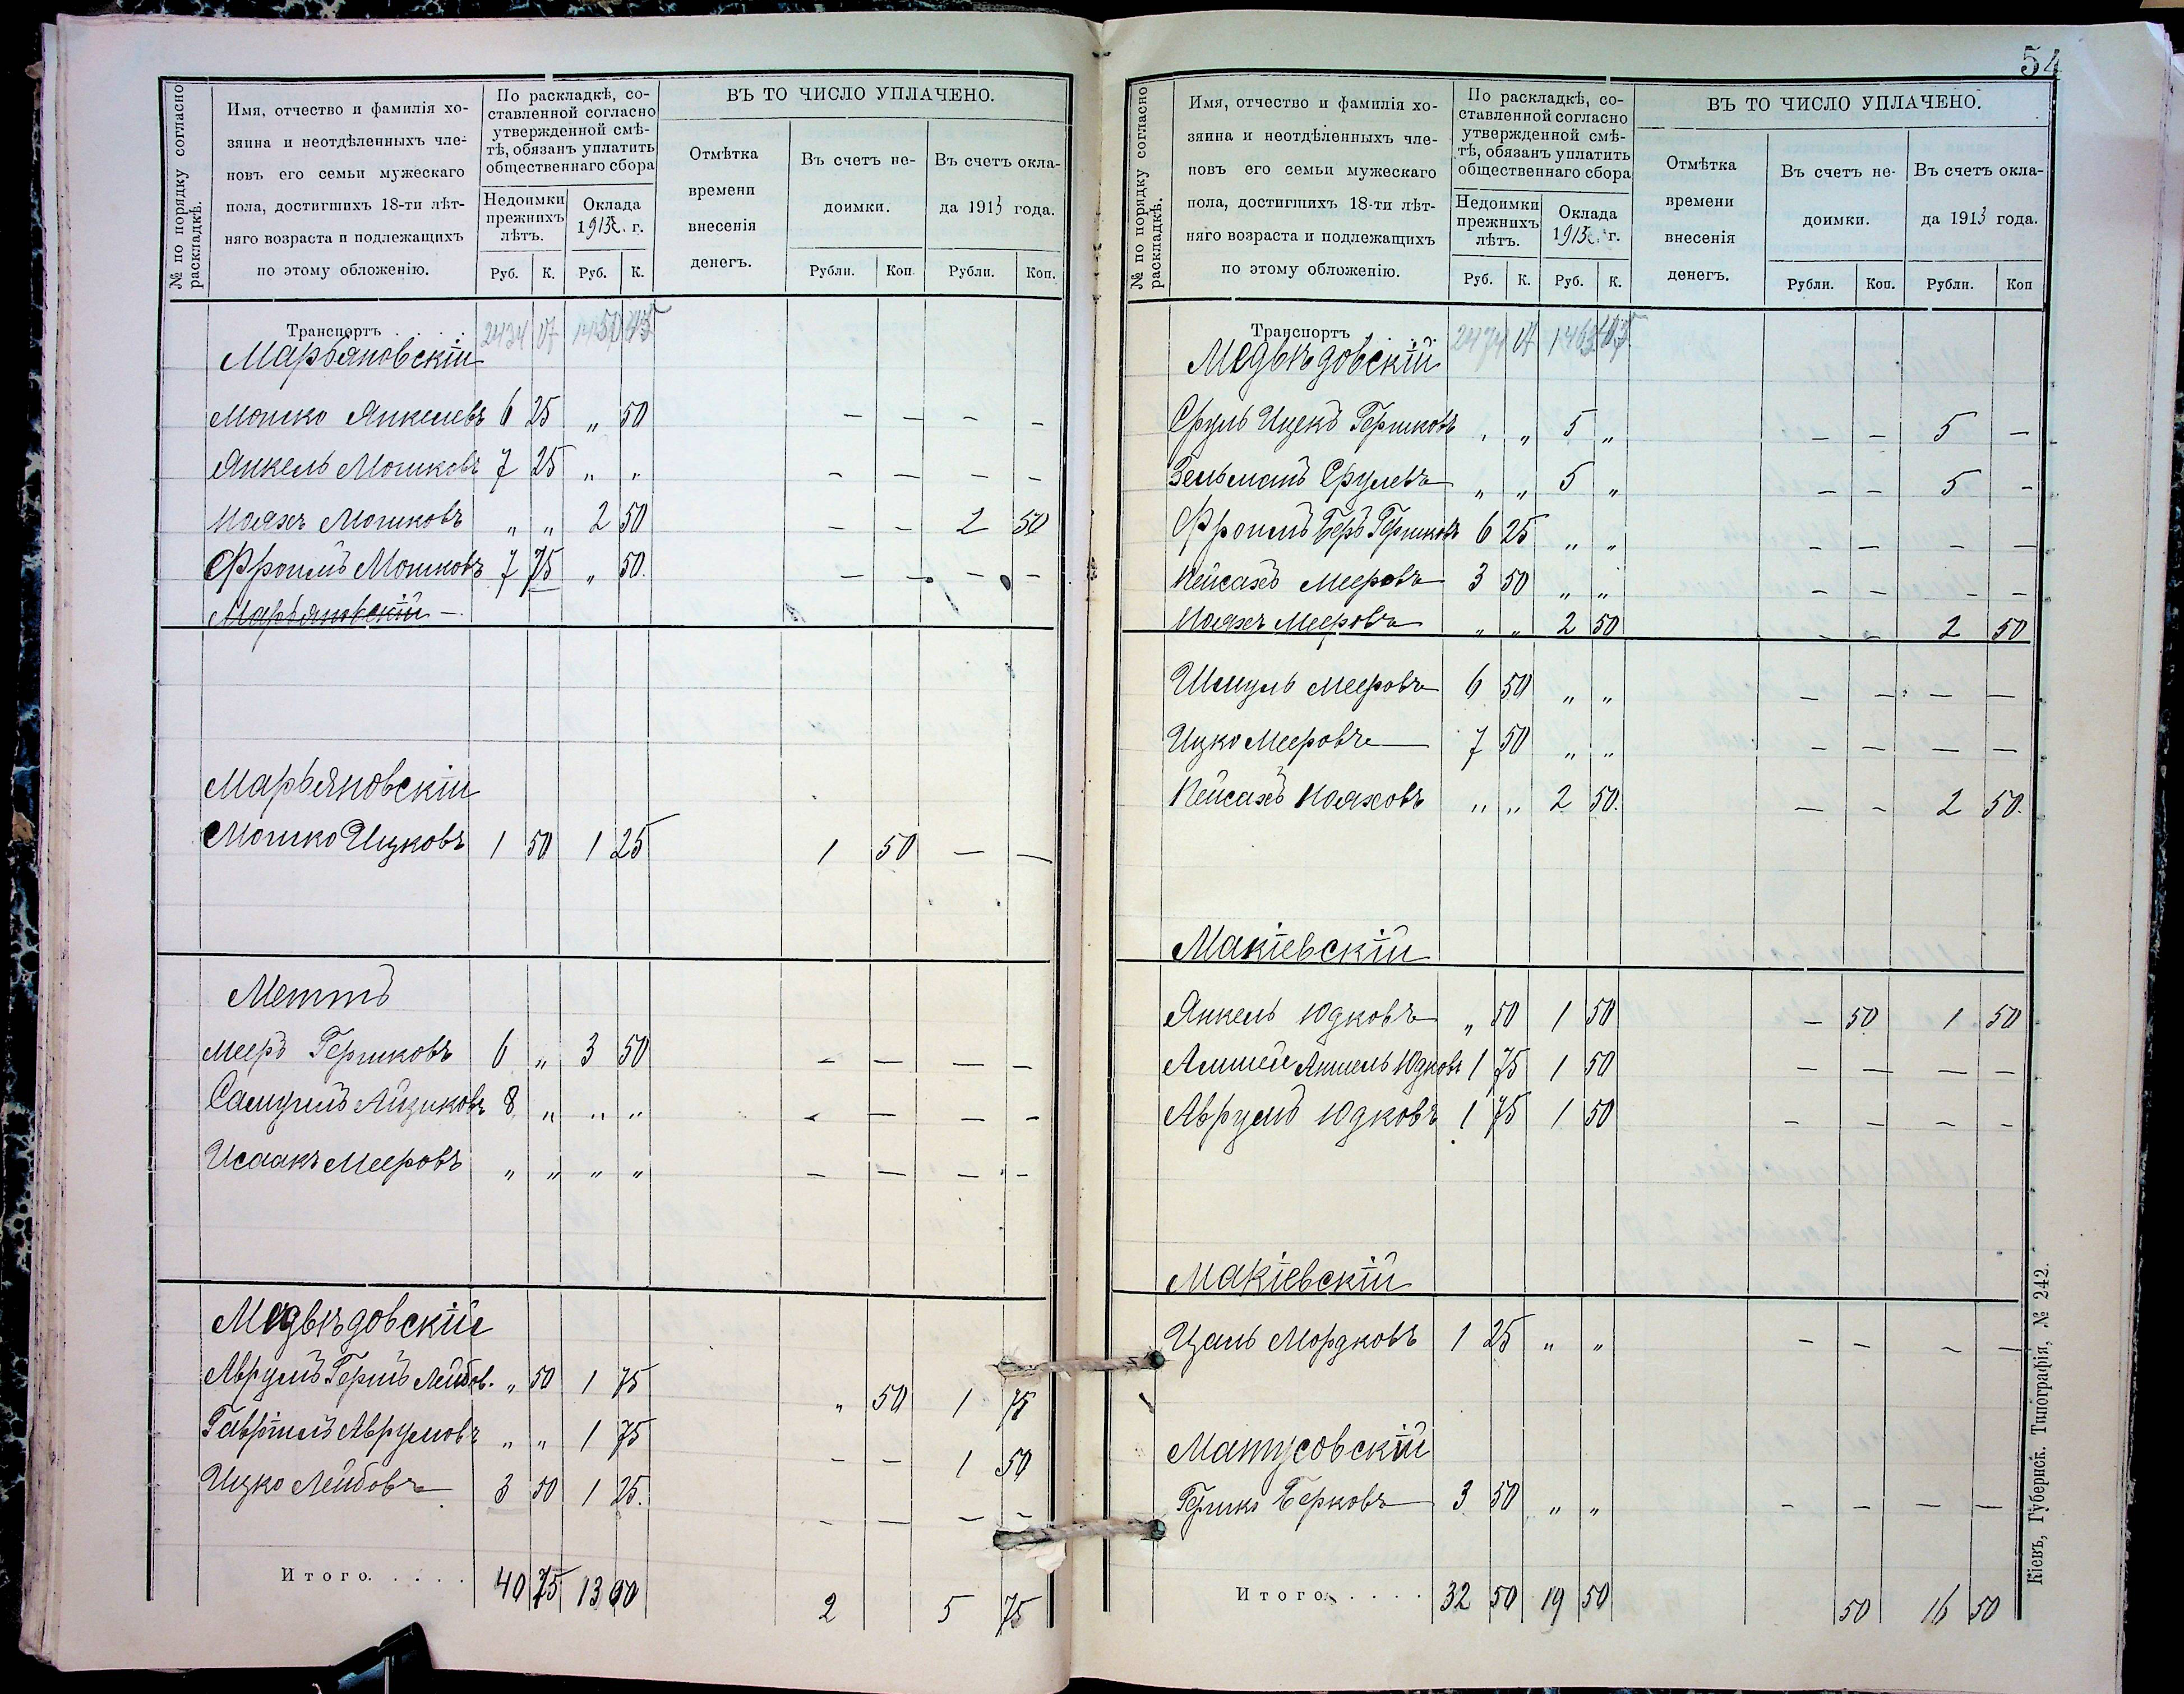 54
№ по порядку согласно раскладкѣ.
Имя, отчество и фамилія хо-
зяина и неотдѣленныхъ чле-
новъ его семьи мужескаго
пола, достигшихъ 18-ти лѣт-
няго возраста и подлежащихъ
по этому обложенію.
По раскладкѣ, со-
ставленной согласно
утвержденной смѣ-
тѣ, обязанъ уплатить
общественнаго сбора
Недоимки прежнихъ лѣтъ.
Оклада 1913 г.
Руб. К. Руб. К.
ВЪ ТО ЧИСЛО УПЛАЧЕНО.
Отмѣтка
времени
внесенія
денегъ.
Въ счетъ не-
доимки.
Въ счетъ окла-
да 1913 года.
Рубли. Коп. Рубли. Коп.
Транспортъ . . . . 2434 07
Марьяновскій
Мошко Янкелевъ 6 25 „ 50 — — — —
Янкель Мошковъ 7 25 „ „ — — — —
Нояхъ Мошковъ „ „ 2 50 — — 2 50
Фроимъ Мошковъ 7 75 „ 50. — — — —
Марьяновскій —
Марьяновскій
Мошко Ицковъ 1 50 1 25 1 50 — —
Меттъ
Мееръ Гершковъ 6 „ 3 50 — — — —
Самуилъ Айзиковъ 8 „ „ „ — — — —
Исаакъ Мееровъ „ „ „ „ — — — —
Медвѣдовскій
Аврумъ Гершъ Лейбов. „ 50 1 75 „ 50 1 75
Гавріилъ Аврумовъ „ „ 1 75 — — 1 50
Ицко Лейбовъ 3 50 1 25. — — — —
Итого. . . . . 40 75 13 00 2 5 75
№ по порядку согласно раскладкѣ.
Имя, отчество и фамилія хо-
зяина и неотдѣленныхъ чле-
новъ его семьи мужескаго
пола, достигшихъ 18-ти лѣт-
няго возраста и подлежащихъ
по этому обложенію.
По раскладкѣ, со-
ставленной согласно
утвержденной смѣ-
тѣ, обязанъ уплатить
общественнаго сбора
Недоимки прежнихъ лѣтъ.
Оклада 1913 г.
Руб. К. Руб. К.
ВЪ ТО ЧИСЛО УПЛАЧЕНО.
Отмѣтка
времени
внесенія
денегъ.
Въ счетъ не-
доимки.
Въ счетъ окла-
да 1913 года.
Рубли. Коп. Рубли. Коп
Транспортъ
Медвѣдовскій
Сруль Ицекъ Гершковъ „ „ 5 „ — — 5 —
Зельманъ Срулевъ „ „ 5 „ — — 5 —
Фроимъ Беръ Гершковъ 6 25 „ „ — — — —
Пейсахъ Мееровъ 3 50 „ „ — — — —
Нояхъ Мееровъ „ „ 2 50 — — 2 50
Шмуль Мееровъ 6 50 „ „ — — — —
Ицко Мееровъ 7 50 „ „ — — — —
Пейсахъ Нояховъ „ „ 2 50. — — 2 50.
Макіевскій
Янкель Юдковъ „ 50 1 50 — 50 1 50
Аншель Юдковъ 1 75 1 50 — — — —
Аврумъ Юдковъ 1 75 1 50 — — — —
Макіевскій
Цаль Мордковъ 1 25 „ „ — — — —
Матусовскій
Гершко Берковъ 3 50 „ „ — — — —
Итого. . . . . 32 50 19 50 50 16 50
Кіевъ, Губернск. Типографія, № 242.